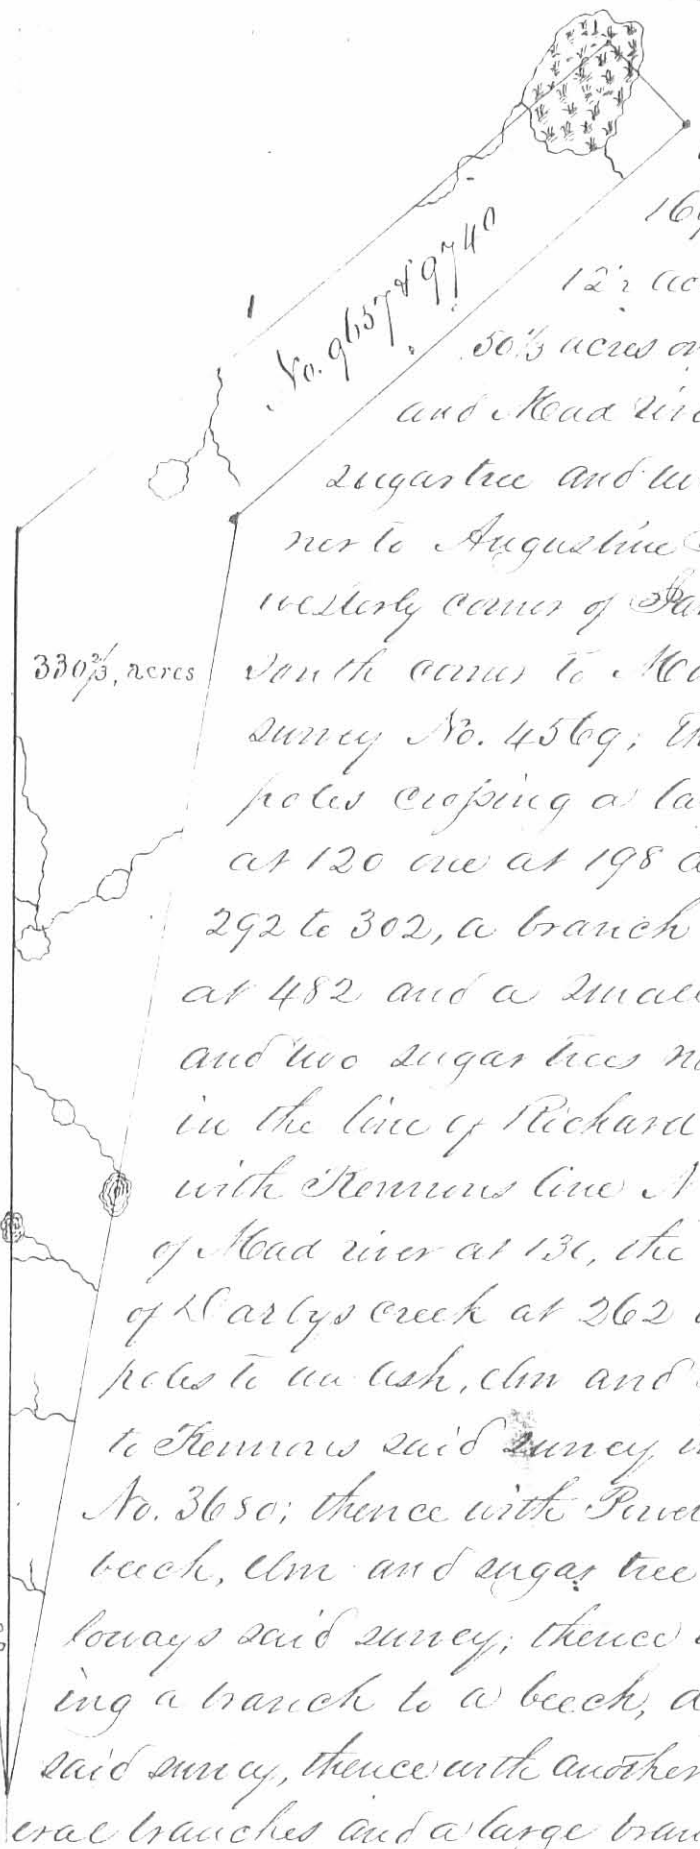 169
12½ ac
No. 9657 & 9740
50⅓ acres on
and Mad riv
sugartree and
ner to Augustine
westerly corner of
330⅔, acres
south corner to
survey No. 4569; th
poles crossing a la
at 120 one at 198 a
292 to 302, a branch
at 482 and a small
and two sugar trees
in the line of Richard
with Kennons line N
of Mad river at 131, the
of Darbys creek at 262
poles to an ash, elm and
to Kennons said survey
No. 3680; thence with
beech, elm and sugar tree
loways said survey; thence
ing a branch to a beech,
said survey, thence with another
eral branches and a large bran